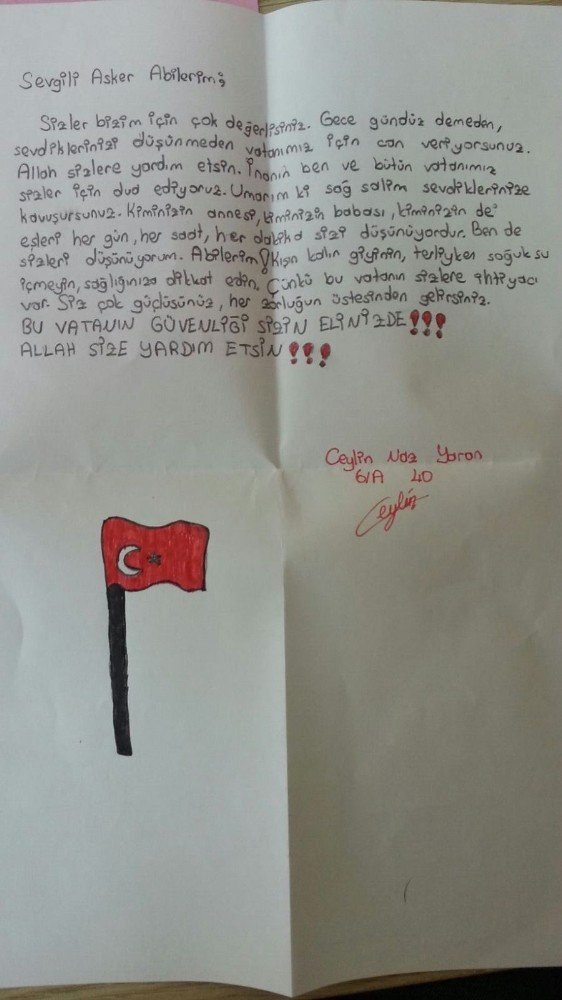 Sevgili Asker Abilerim;
Sizler bizim için çok değerlisiniz. Gece gündüz demeden,
sevdiklerinizi düşünmeden vatanımız için can veriyorsunuz.
Allah sizlere yardım etsin. İnanın ben ve bütün vatanımız
sizler için dua ediyoruz. Umarım ki sağ salim sevdiklerinize
kavuşursunuz. Kiminizin annesi, kiminizin babası, kiminizin de
eşleri her gün, her saat, her dakika sizi düşünüyordur. Ben de
sizleri düşünüyorum. Abilerim! Kışın kalın giyinin, terliyken soğuk su
içmeyin, sağlığınıza dikkat edin. Çünkü bu vatanın sizlere ihtiyacı
var. Siz çok güçlüsünüz, her zorluğun üstesinden gelirsiniz.
BU VATANIN GÜVENLİĞİ SİZİN ELİNİZDE!!!
ALLAH SİZE YARDIM ETSİN!!!
Ceylin Naz Yaran
6/A 40
Ceylin